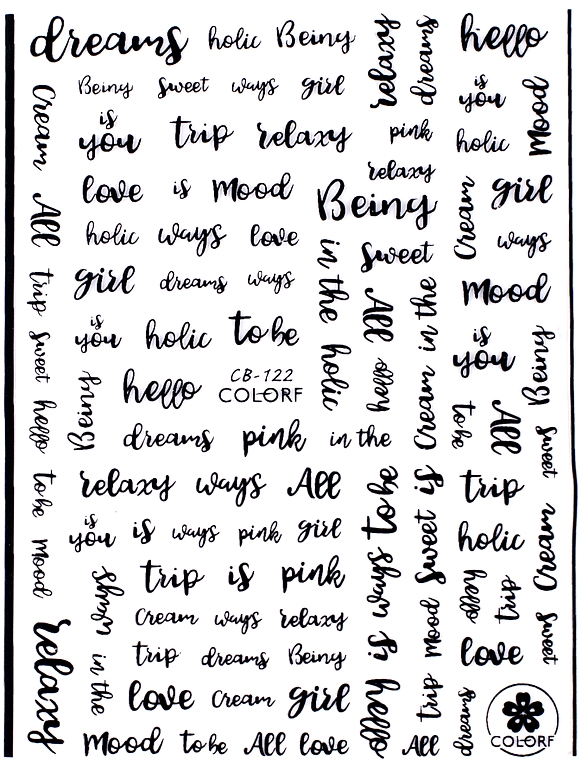 dreams holic Being
relaxy
dreams
hello
Being Sweet ways girl
is
you
holic
Mood
Cream
is
you trip relaxy pink
relaxy
love is Mood
Being
Cream
girl
ways
All
holic ways love
Sweet
girl dreams ways
in the holic
All
hello
Cream in the
Mood
trip
is
you holic to be
is
you
Being
Sweet
hello
Being
hello
CB-122
COLORF
to be
All
Sweet
dreams pink in the
to be
relaxy ways All
hello is ways to be
Sweet is
trip
is
you is ways pink girl
holic
Cream
mood
ways
trip is pink
hello
trip
Cream ways relaxy
mood
love
Sweet
relaxy
in the
trip dreams Being
love Cream girl
trip
dreams
Mood to be All love
All
COLORF